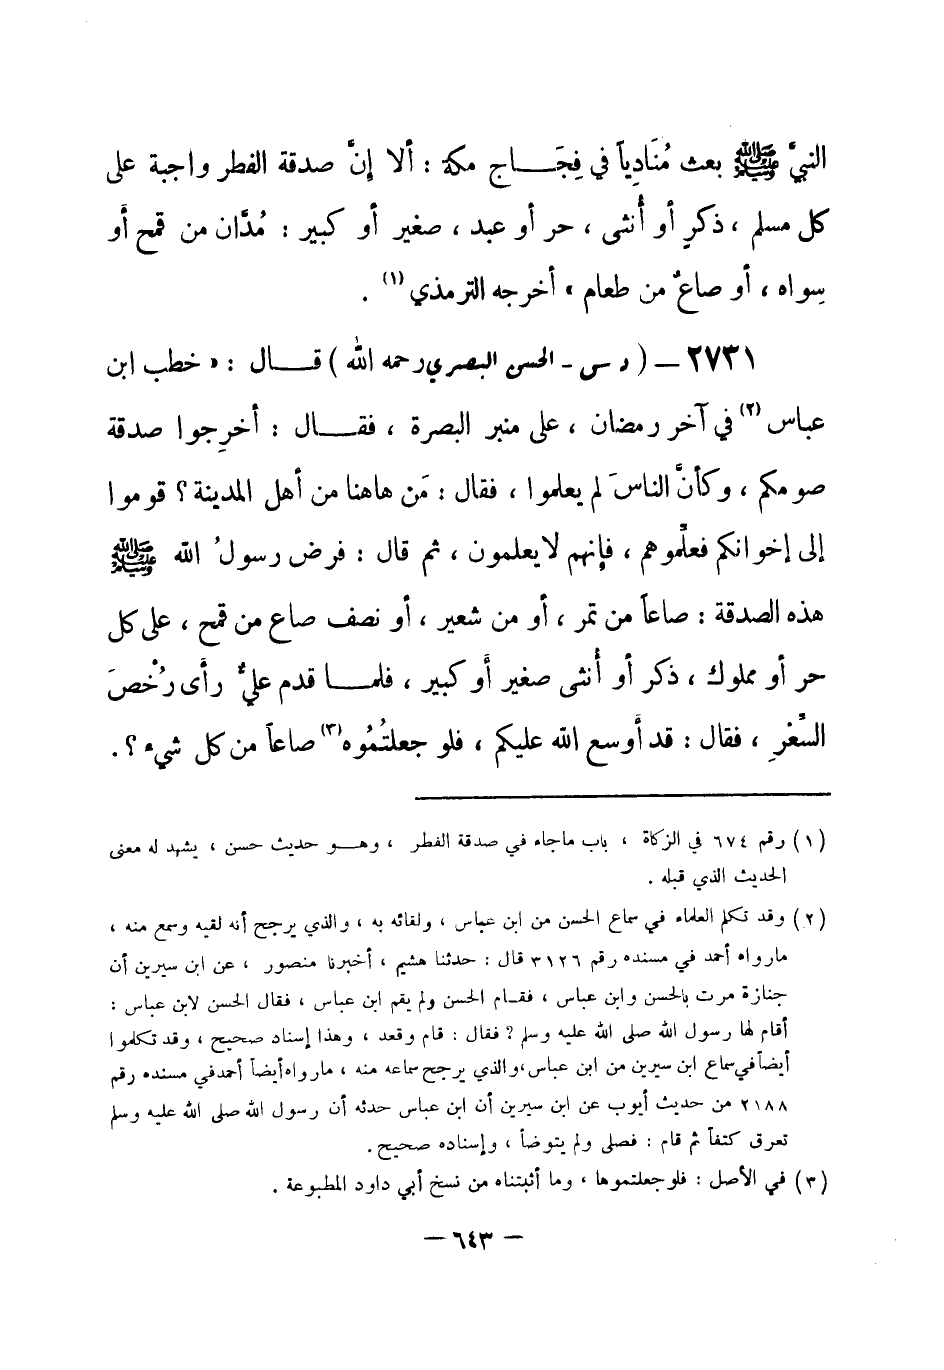 النبيَّ ﷺ بعث مُنَادِياً في فِجَـــاج مكة : ألا إنَّ صدقة الفطر واجبة على
كل مسلم ، ذكرٍ أو أُنثى ، حر أو عبد ، صغير أو كبير : مُدَّان من قمح أو
سِواه ، أو صاعٌ من طعام » أخرجه الترمذي (١) .
٢٧٣١ – ( د س - الحسن البصري رحمه الله ) قـــال : « خطب ابن
عباس (٢) في آخر رمضان ، على منبر البصرة ، فقـــال : أخرِجوا صدقة
صومكم ، وكأنَّ الناسَ لم يعلموا ، فقال : مَن هاهنا من أهل المدينة ؟ قوموا
إلى إخوانكم فعلِّموهم ، فإنهم لا يعلمون ، ثم قال : فرض رسولُ الله ﷺ
هذه الصدقة : صاعاً من تمر ، أو من شعير ، أو نصف صاع من قمح ، على كل
حر أو مملوك ، ذكر أو أُنثى صغير أو كبير ، فلمـــا قدم عليٌّ رأى رُخْصَ
السِّعْرِ ، فقال : قد أوسع الله عليكم ، فلو جعلتُمُوه (٣) صاعاً من كل شيء ؟ .
(١) رقم ٦٧٤ في الزكاة ، باب ماجاء في صدقة الفطر ، وهـــو حديث حسن ، يشهد له معنى
الحديث الذي قبله .
(٢) وقد تكلم العلماء في سماع الحسن من ابن عباس ، ولقائه به ، والذي يرجح أنه لقيه وسمع منه ،
مارواه أحمد في مسنده رقم ٣١٢٦ قال : حدثنا هشيم ، أخبرنا منصور ، عن ابن سيرين أن
جنازة مرت بالحسن وابن عباس ، فقـام الحسن ولم يقم ابن عباس ، فقال الحسن لابن عباس :
أقام لها رسول الله صلى الله عليه وسلم ؟ فقال : قام وقعد ، وهذا إسناد صحيح ، وقد تكلموا
أيضاً في سماع ابن سيرين من ابن عباس ، والذي يرجح سماعه منه ، مارواه أيضاً أحمد في مسنده رقم
٢١٨٨ من حديث أيوب عن ابن سيرين أن ابن عباس حدثه أن رسول الله صلى الله عليه وسلم
تعرق كتفاً ثم قام : فصلى ولم يتوضأ ، وإسناده صحيح .
(٣) في الأصل : فلو جعلتموها ، وما أثبتناه من نسخ أبي داود المطبوعة .
– ٦٤٣ –